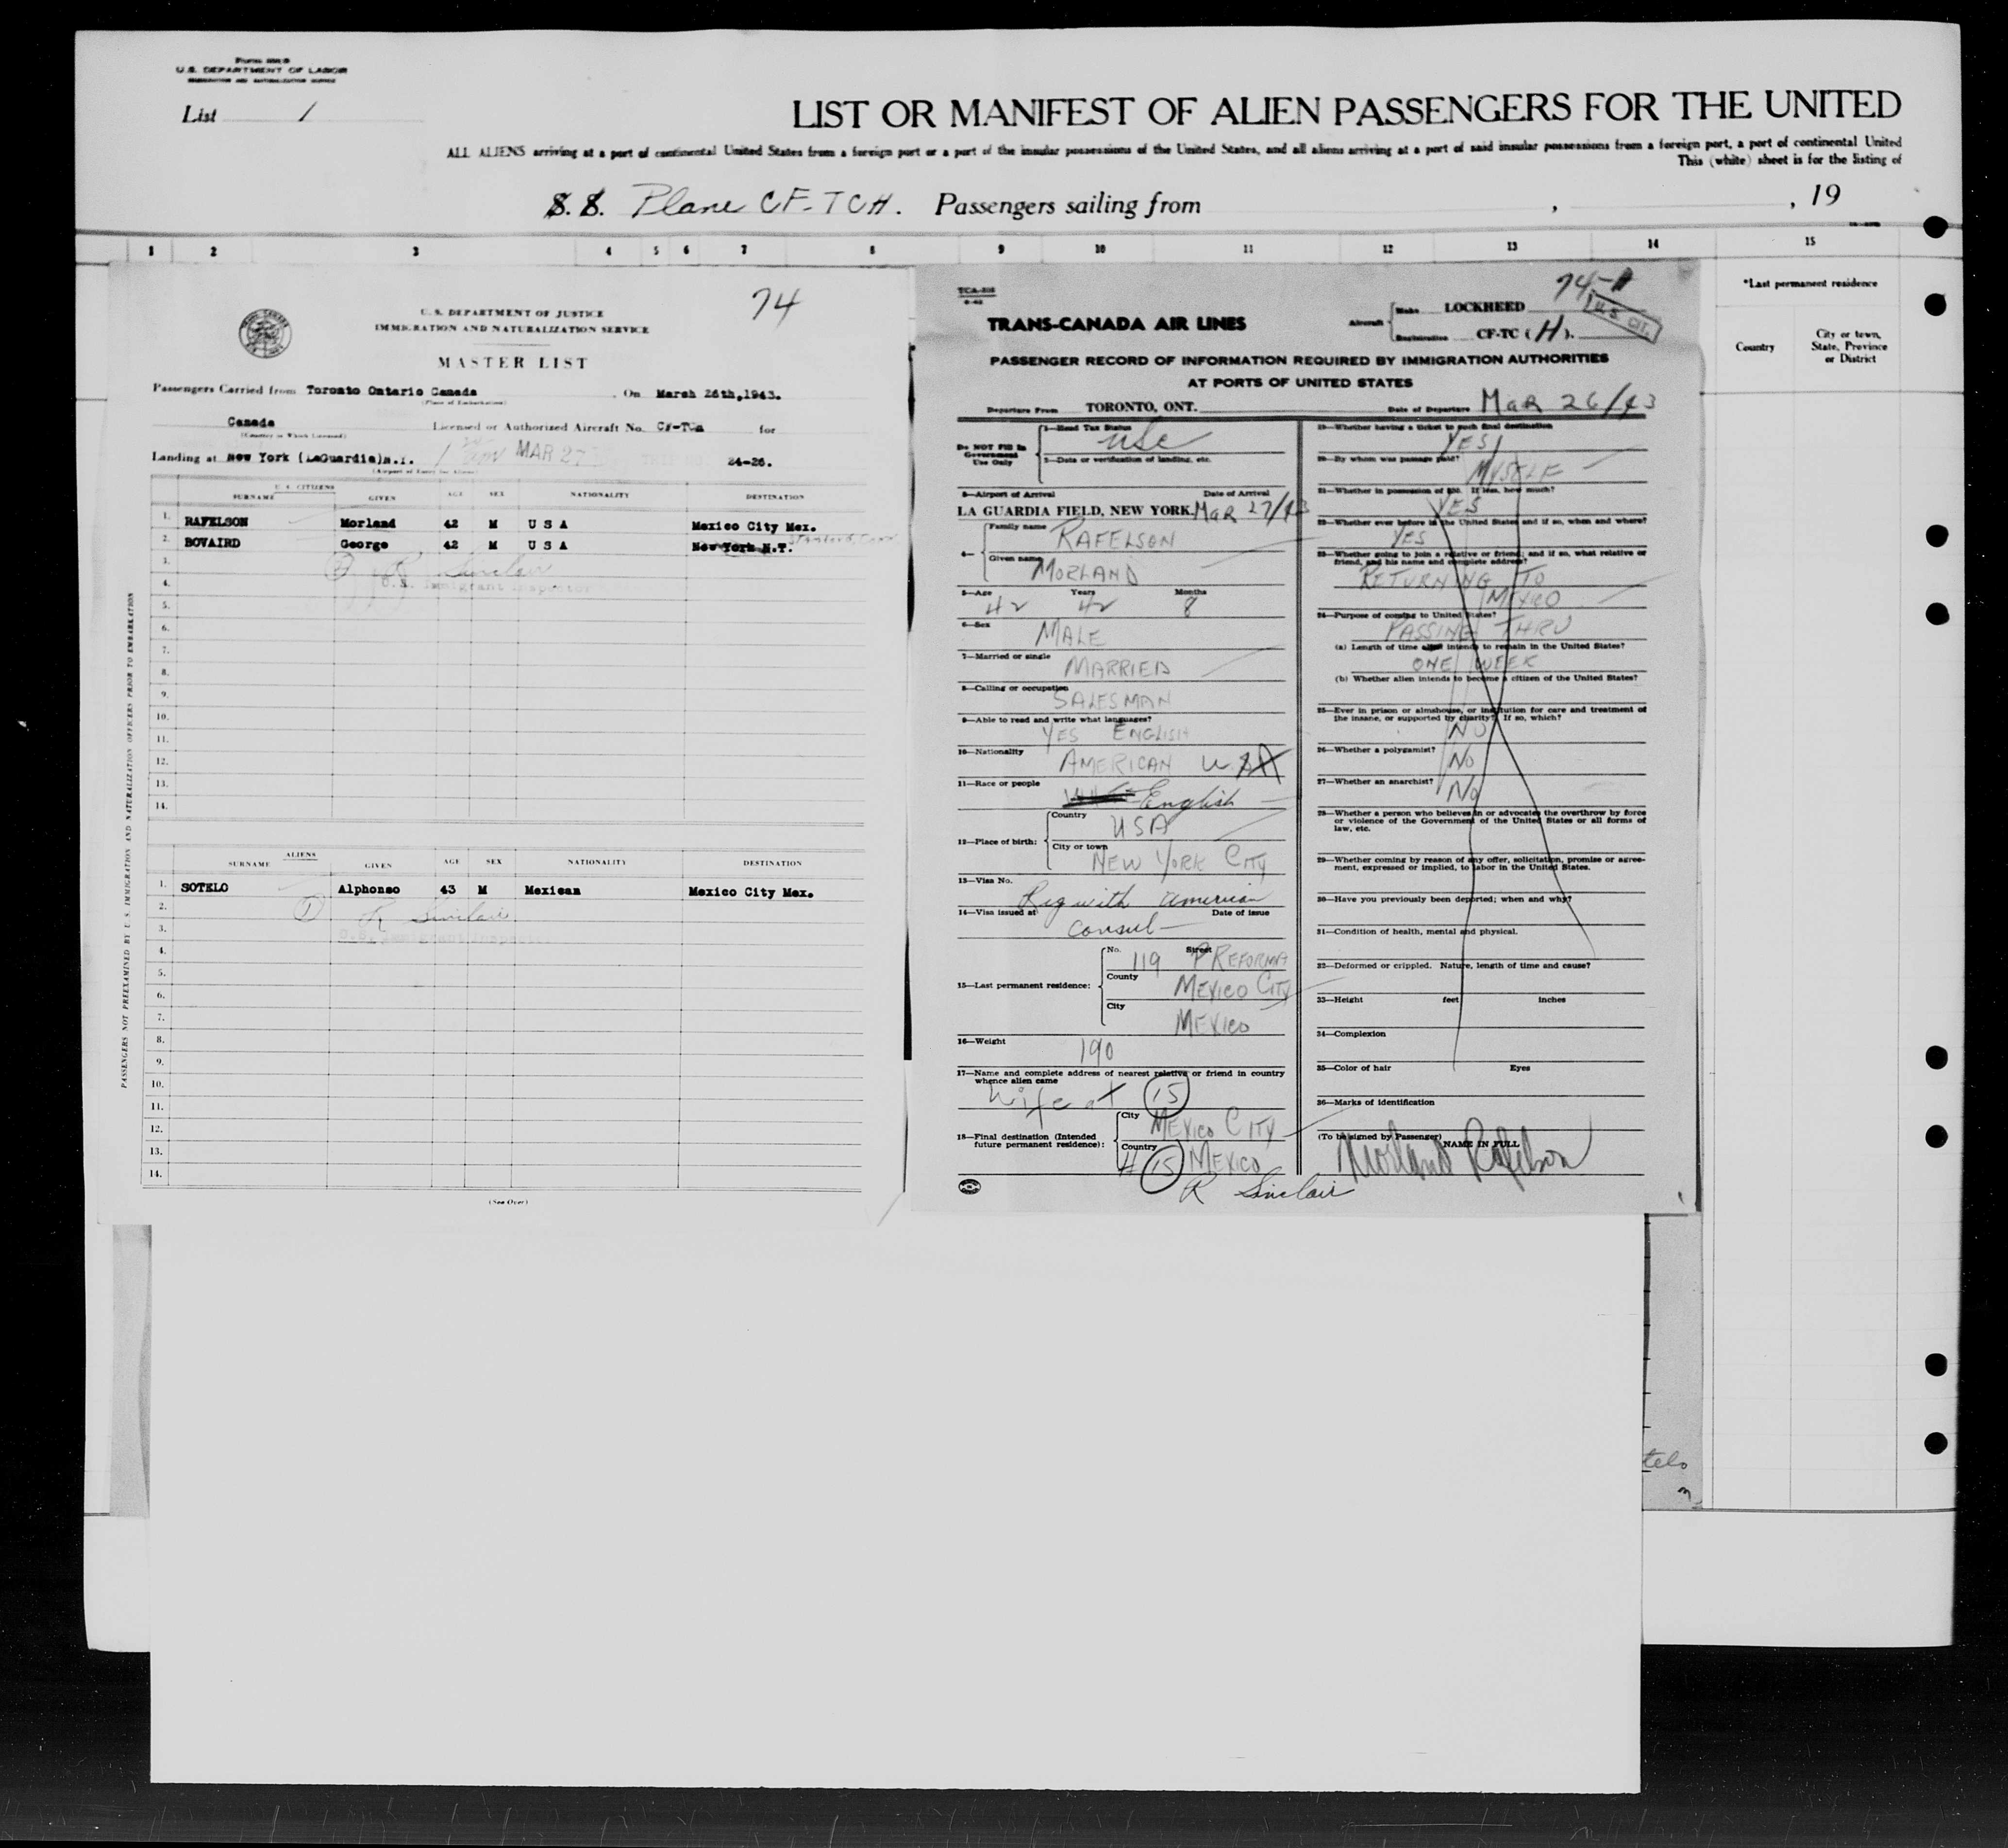 U.S. DEPARTMENT OF LABOR
List 1
LIST OR MANIFEST OF ALIEN PASSENGERS FOR THE UNITED
ALL ALIENS arriving at a port of continental United States from a foreign port or a port of the insular possessions of the United States, and all aliens arriving at a port of said insular possessions from a foreign port, a port of continental United
This (white) sheet is for the listing of
S. S. Plane CF-TCH. Passengers sailing from , , 19
1 2 3 4 5 6 7 8 9 10 11 12 13 14 15
*Last permanent residence
Country
City or town, State, Province or District
74
U. S. DEPARTMENT OF JUSTICE
IMMIGRATION AND NATURALIZATION SERVICE
MASTER LIST
Passengers Carried from Toronto Ontario Canada On March 26th,1943.
(Place of Embarkation)
Canada Licensed or Authorized Aircraft No. CF-TCH for
(Country in Which Licensed)
Landing at New York (LaGuardia)N.Y. MAR 27 24-26.
U. S. CITIZENS
SURNAME GIVEN AGE SEX NATIONALITY DESTINATION
1. RAFELSON Morland 42 M U S A Mexico City Mex.
2. BOVAIRD George 42 M U S A New York N.Y.
3. R Sinclair
4. U.S. Immigrant Inspector
5.
6.
7.
8.
9.
10.
11.
12.
13.
14.
ALIENS
SURNAME GIVEN AGE SEX NATIONALITY DESTINATION
1. SOTELO Alphonso 43 M Mexican Mexico City Mex.
2. 1 R Sinclair
3. U.S. Immigrant Inspector
4.
5.
6.
7.
8.
9.
10.
11.
12.
13.
14.
(See Over)
PASSENGERS NOT PREEXAMINED BY U. S. IMMIGRATION AND NATURALIZATION OFFICERS PRIOR TO EMBARKATION
74-1
U.S. CIT.
TRANS-CANADA AIR LINES
Aircraft Make LOCKHEED
Registration CF-TC (H).
PASSENGER RECORD OF INFORMATION REQUIRED BY IMMIGRATION AUTHORITIES
AT PORTS OF UNITED STATES
Departure From TORONTO, ONT. Date of Departure MAR 26/43
Do NOT Fill In Government Use Only
1—Head Tax Status
USC
2—Data or verification of landing, etc.
3—Airport of Arrival Date of Arrival
LA GUARDIA FIELD, NEW YORK. MAR 27/43
4—
Family name RAFELSON
Given name MORLAND
5—Age Years Months
42 42 8
6—Sex
MALE
7—Married or single
MARRIED
8—Calling or occupation
SALESMAN
9—Able to read and write what languages?
YES ENGLISH
10—Nationality
AMERICAN USA
11—Race or people
English
12—Place of birth:
Country
USA
City or town
NEW YORK CITY
13—Visa No.
Reg with American
14—Visa issued at Date of issue
Consul
15—Last permanent residence:
No. 119 Street P REFORMA
County MEXICO CITY
City MEXICO
16—Weight
190
17—Name and complete address of nearest relative or friend in country whence alien came
Wife at 15
18—Final destination (Intended future permanent residence):
City MEXICO CITY
Country 15 MEXICO
R Sinclair
19—Whether having a ticket to such final destination
YES
20—By whom was passage paid?
MYSELF
21—Whether in possession of $50. If less, how much?
YES
22—Whether ever before in the United States and if so, when and where?
YES
23—Whether going to join a relative or friend; and if so, what relative or friend, and his name and complete address?
RETURNING TO
MEXICO
24—Purpose of coming to United States?
PASSING THRU
(a) Length of time alien intends to remain in the United States?
ONE WEEK
(b) Whether alien intends to become a citizen of the United States?
25—Ever in prison or almshouse, or institution for care and treatment of the insane, or supported by charity? If so, which?
NO
26—Whether a polygamist?
NO
27—Whether an anarchist?
NO
28—Whether a person who believes in or advocates the overthrow by force or violence of the Government of the United States or all forms of law, etc.
29—Whether coming by reason of any offer, solicitation, promise or agreement, expressed or implied, to labor in the United States.
30—Have you previously been deported; when and why?
31—Condition of health, mental and physical.
32—Deformed or crippled. Nature, length of time and cause?
33—Height feet inches
34—Complexion
35—Color of hair Eyes
36—Marks of identification
(To be signed by Passenger) NAME IN FULL
Morland Rafelson
telo